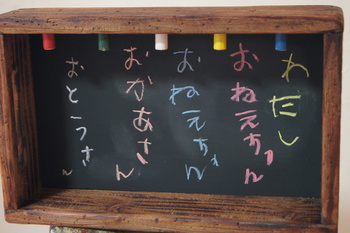 わたし
おねえちゃん
おねえちゃん
おかあさん
おとうさん